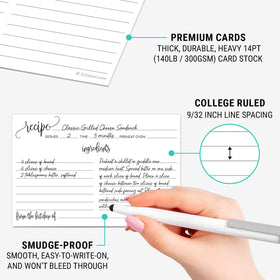 PREMIUM CARDS
THICK, DURABLE, HEAVY 14PT
(140LB / 300GSM) CARD STOCK
COLLEGE RULED
9/32 INCH LINE SPACING
recipe Classic Grilled Cheese Sandwich
SERVES 2 TIME 5 minutes PREHEAT OVEN
ingredients
4 slices of bread
4 slices of cheese
2 tablespoons butter, softened
Preheat a skillet or griddle over
medium heat. Spread butter on one
side of each slice of bread. Place a slice
of cheese between two slices of bread
from the kitchen of
SMUDGE-PROOF
SMOOTH, EASY-TO-WRITE-ON,
AND WON'T BLEED THROUGH